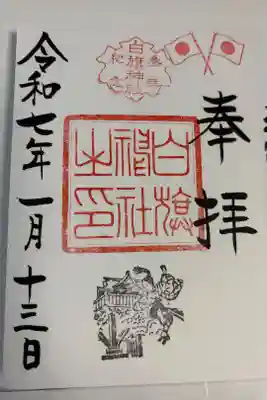 奉拝
白旗神社
参拝記念
白旗神社之印
令和七年一月十三日